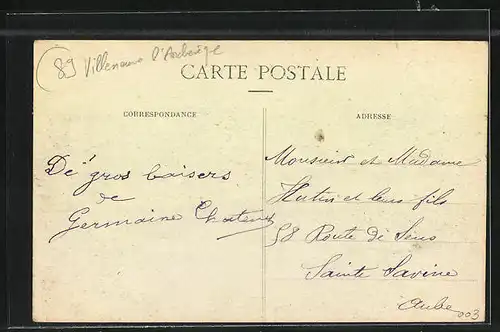 89 Villeneuve l'Archevêque
CARTE POSTALE
CORRESPONDANCE
ADRESSE
De gros baisers
de
Germaine
Monsieur et Madame
Hutin et leurs fils
58 Route de Sens
Sainte Savine
Aube
003